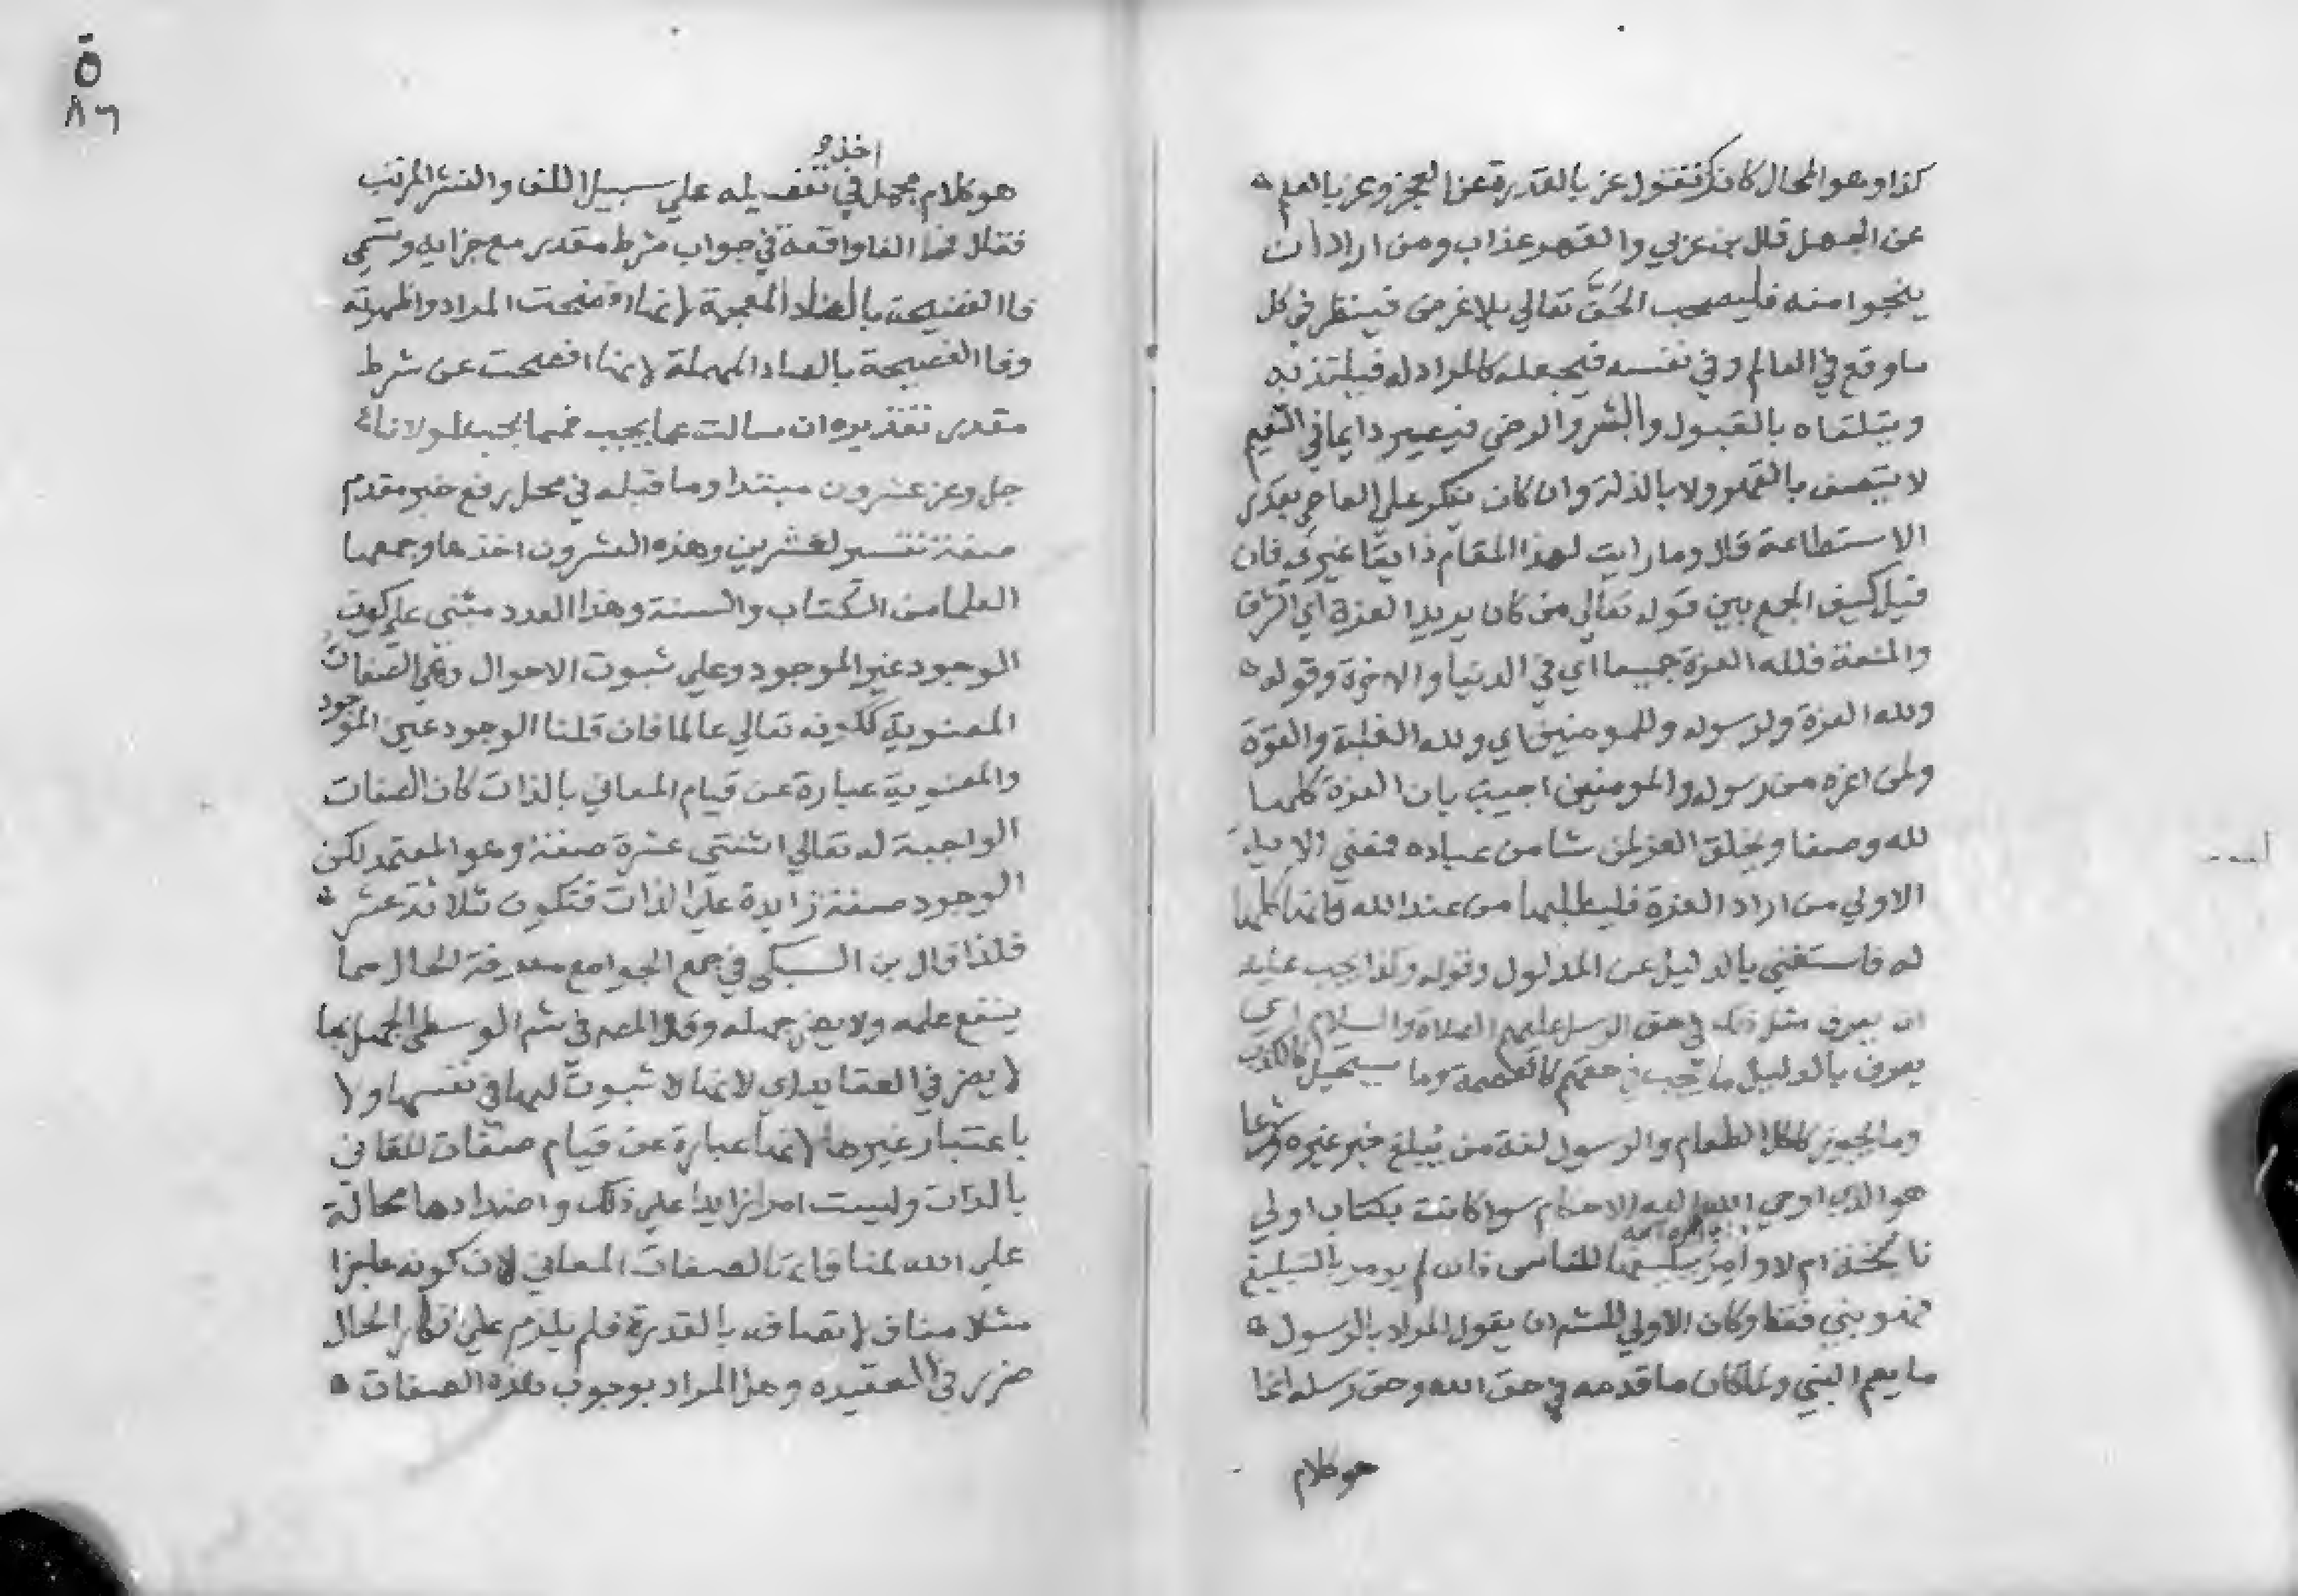 كذا وهو المحال كانك تقول عز بالقدرة عن العجز وعز بالعلم
عن الجهل قال بن عربي والقهر عذاب ومن اراد ان
ينجوا منه فليصحب الحق تعالي بلا غرض فينظر في كل
ما وقع في العالم وفي نفسه فيجعله كالمراد له فيلتذ به
ويتلقاه بالقبول والبشر والرضي فيصير دايما في النعيم
لا يتصف بالقهر ولا بالذلة وان كان ينكر علي العاصي بقدر
الاستطاعة قال وما رايت لهذا المقام ذايقا غيري فان
قيل كيف الجمع بين قوله تعالي من كان يريد العزة اي الشرف
والمنعة فلله العزة جميعا اي في الدنيا والاخرة وقوله
ولله العزة ولرسوله وللمومنين اي ولله الغلبة والقوة
ولمن اعزه من رسوله والمومنين اجيب بان العزة كلها
لله وصفا ويخلق العز لمن شا من عباده فمعني الاية
الاولي من اراد العزة فليطلبها من عند الله فانها كلها
له فاستغني بالدليل عن المدلول وقوله وكذا يجب عليه
ان يعرف مثل ذلك في حق الرسل عليهم الصلاة والسلام اي
يعرف بالدليل ما يجب في حقهم كالعصمة وما يستحيل كالكذب
وما يجوز كاكل الطعام والرسول لغة من يبلغ خبر غيره وشرعا
هو الذي اوحي الله اليه الاحكام سوا كانت بكتاب اولي
ناسخة ام لا وامر بتبليغها للناس فان لم يومر بالتبليغ
فهو نبي فقط وكان الاولي للشم ان يقول المراد بالرسول
ما يعم النبي ولما كان ما قدمه في حق الله وحق رسله انما
هو كلام
ة
٨٦
هو كلام مجمل اخذ في تفصيله علي سبيل اللف والنشر المرتب
فقال فما الفا واقعة في جواب شرط مقدر مع جزايه وتسمي
فا الفضيحة بالضاد المعجمة لانها افضحت المراد واظهرته
وفا الفصيحة بالصاد المهملة لانها افصحت عن شرط
مقدر تقديره ان سالت عما يجب فمما يجب لمولانا
جل وعز عشرون مبتدا وما قبله في محل رفع خبر مقدم
صفة تفسير لعشرين وهذه العشرون اخذها وجمعها
العلما من الكتاب والسنة وهذا العدد مبني علي كون
الوجود غير الموجود وعلي ثبوت الاحوال وهي الصفات
المعنوية ككونه تعالي عالما فان قلنا الوجود عين الموجود
والمعنوية عبارة عن قيام المعاني بالذات كان الصفات
الواجبة له تعالي اثنتي عشرة صفة وهو المعتمد لكن
الوجود صفة زايدة علي الذات فتكون ثلاثة عشر
فلذا قال بن السبكي في جمع الجوامع معرفة الحال مما
ينفع علمه ولا يضر جهله وقال المصم في شم الوسطي الجهل بها
لا يضر في العقايد اي لانها لا ثبوت لها في نفسها ولا
باعتبار غيرها لانها عبارة عن قيام صفات للمعاني
بالذات وليست امرا زايدا علي ذلك واضدادها محالة
علي الله لمنافاتها لصفات المعاني لان كونه عاجزا
مثلا مناف لاتصافه بالقدرة فلم يلزم علي انكار الحال
ضرر في العقيده وهذا المراد بوجوب هذه الصفات